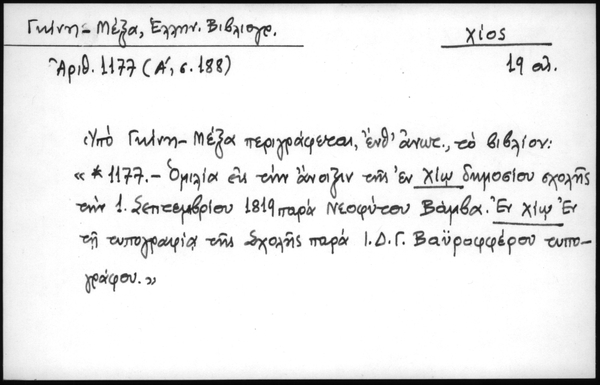 Γκίνη - Μέξα, Ἑλλην. Βιβλιογρ.
Χίος
Ἀριθ. 1177 (Α', σ. 188)
19 αἰ.
Ὑπό Γκίνη - Μέξα περιγράφεται, ἔνθ' ἀνωτ., τό βιβλίον:
« * 1177. - Ὁμιλία εἰς τήν ἄνοιξιν τῆς ἐν Χίῳ δημοσίου σχολῆς
τήν 1. Σεπτεμβρίου 1819 παρά Νεοφύτου Βάμβα. Ἐν Χίῳ Ἐν
τῇ τυπογραφίᾳ τῆς Σχολῆς παρά Ι.Δ.Γ. Βαϋροφφέρου τυπο-
γράφου. »